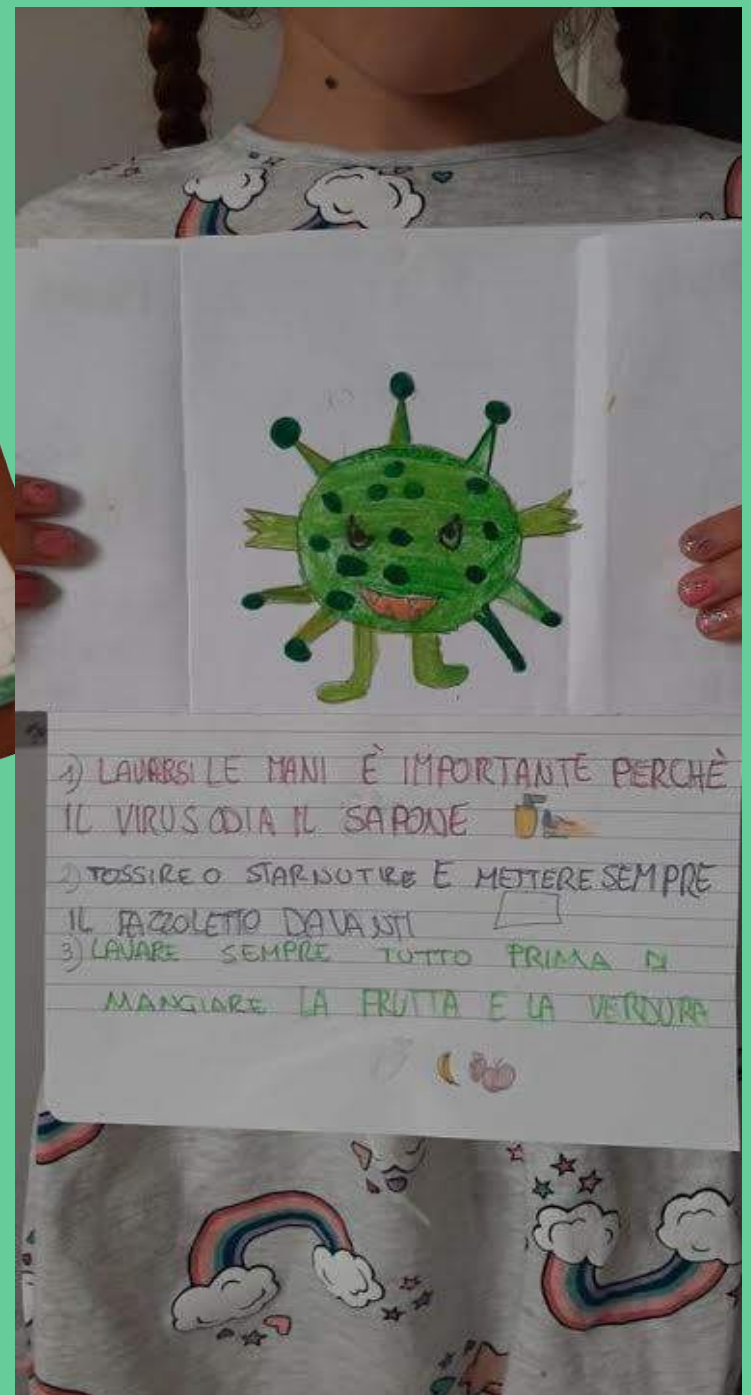 1) LAVARSI LE MANI È IMPORTANTE PERCHÈ
IL VIRUS ODIA IL SAPONE
2) TOSSIRE O STARNUTIRE E METTERE SEMPRE
IL FAZZOLETTO DAVANTI
3) LAVARE SEMPRE TUTTO PRIMA DI
MANGIARE LA FRUTTA E LA VERDURA